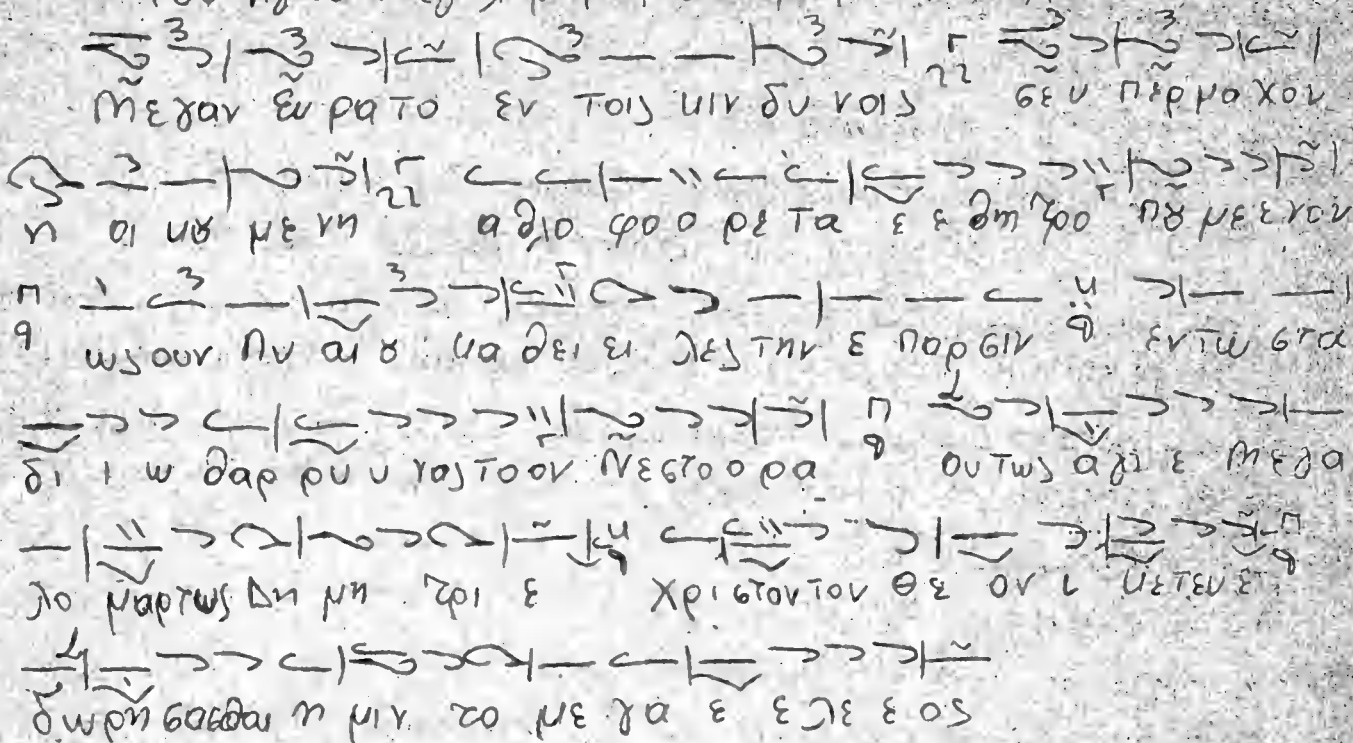 Μεγαν ευ ρα το εν τοις κιν δυ νοις σε υ περμαχον
η οι κȣ με νη α θλο φοο ρε τα ε ε θνη τρο πȣ με ε νον
ως ουν Λυ αι ȣ κα θει ει λες την ε παρσιν εν τω στα
δι ι ω θαρ ρυ υ νας τοον Νεστο ο ρα ου τως αγι ε Μεγα
λο μαρτως Δη μη τρι ε χρι στον τον θε ον ι κετευ ε
δωρη σασθαι η μιν το με γα ε ε λε ε ος